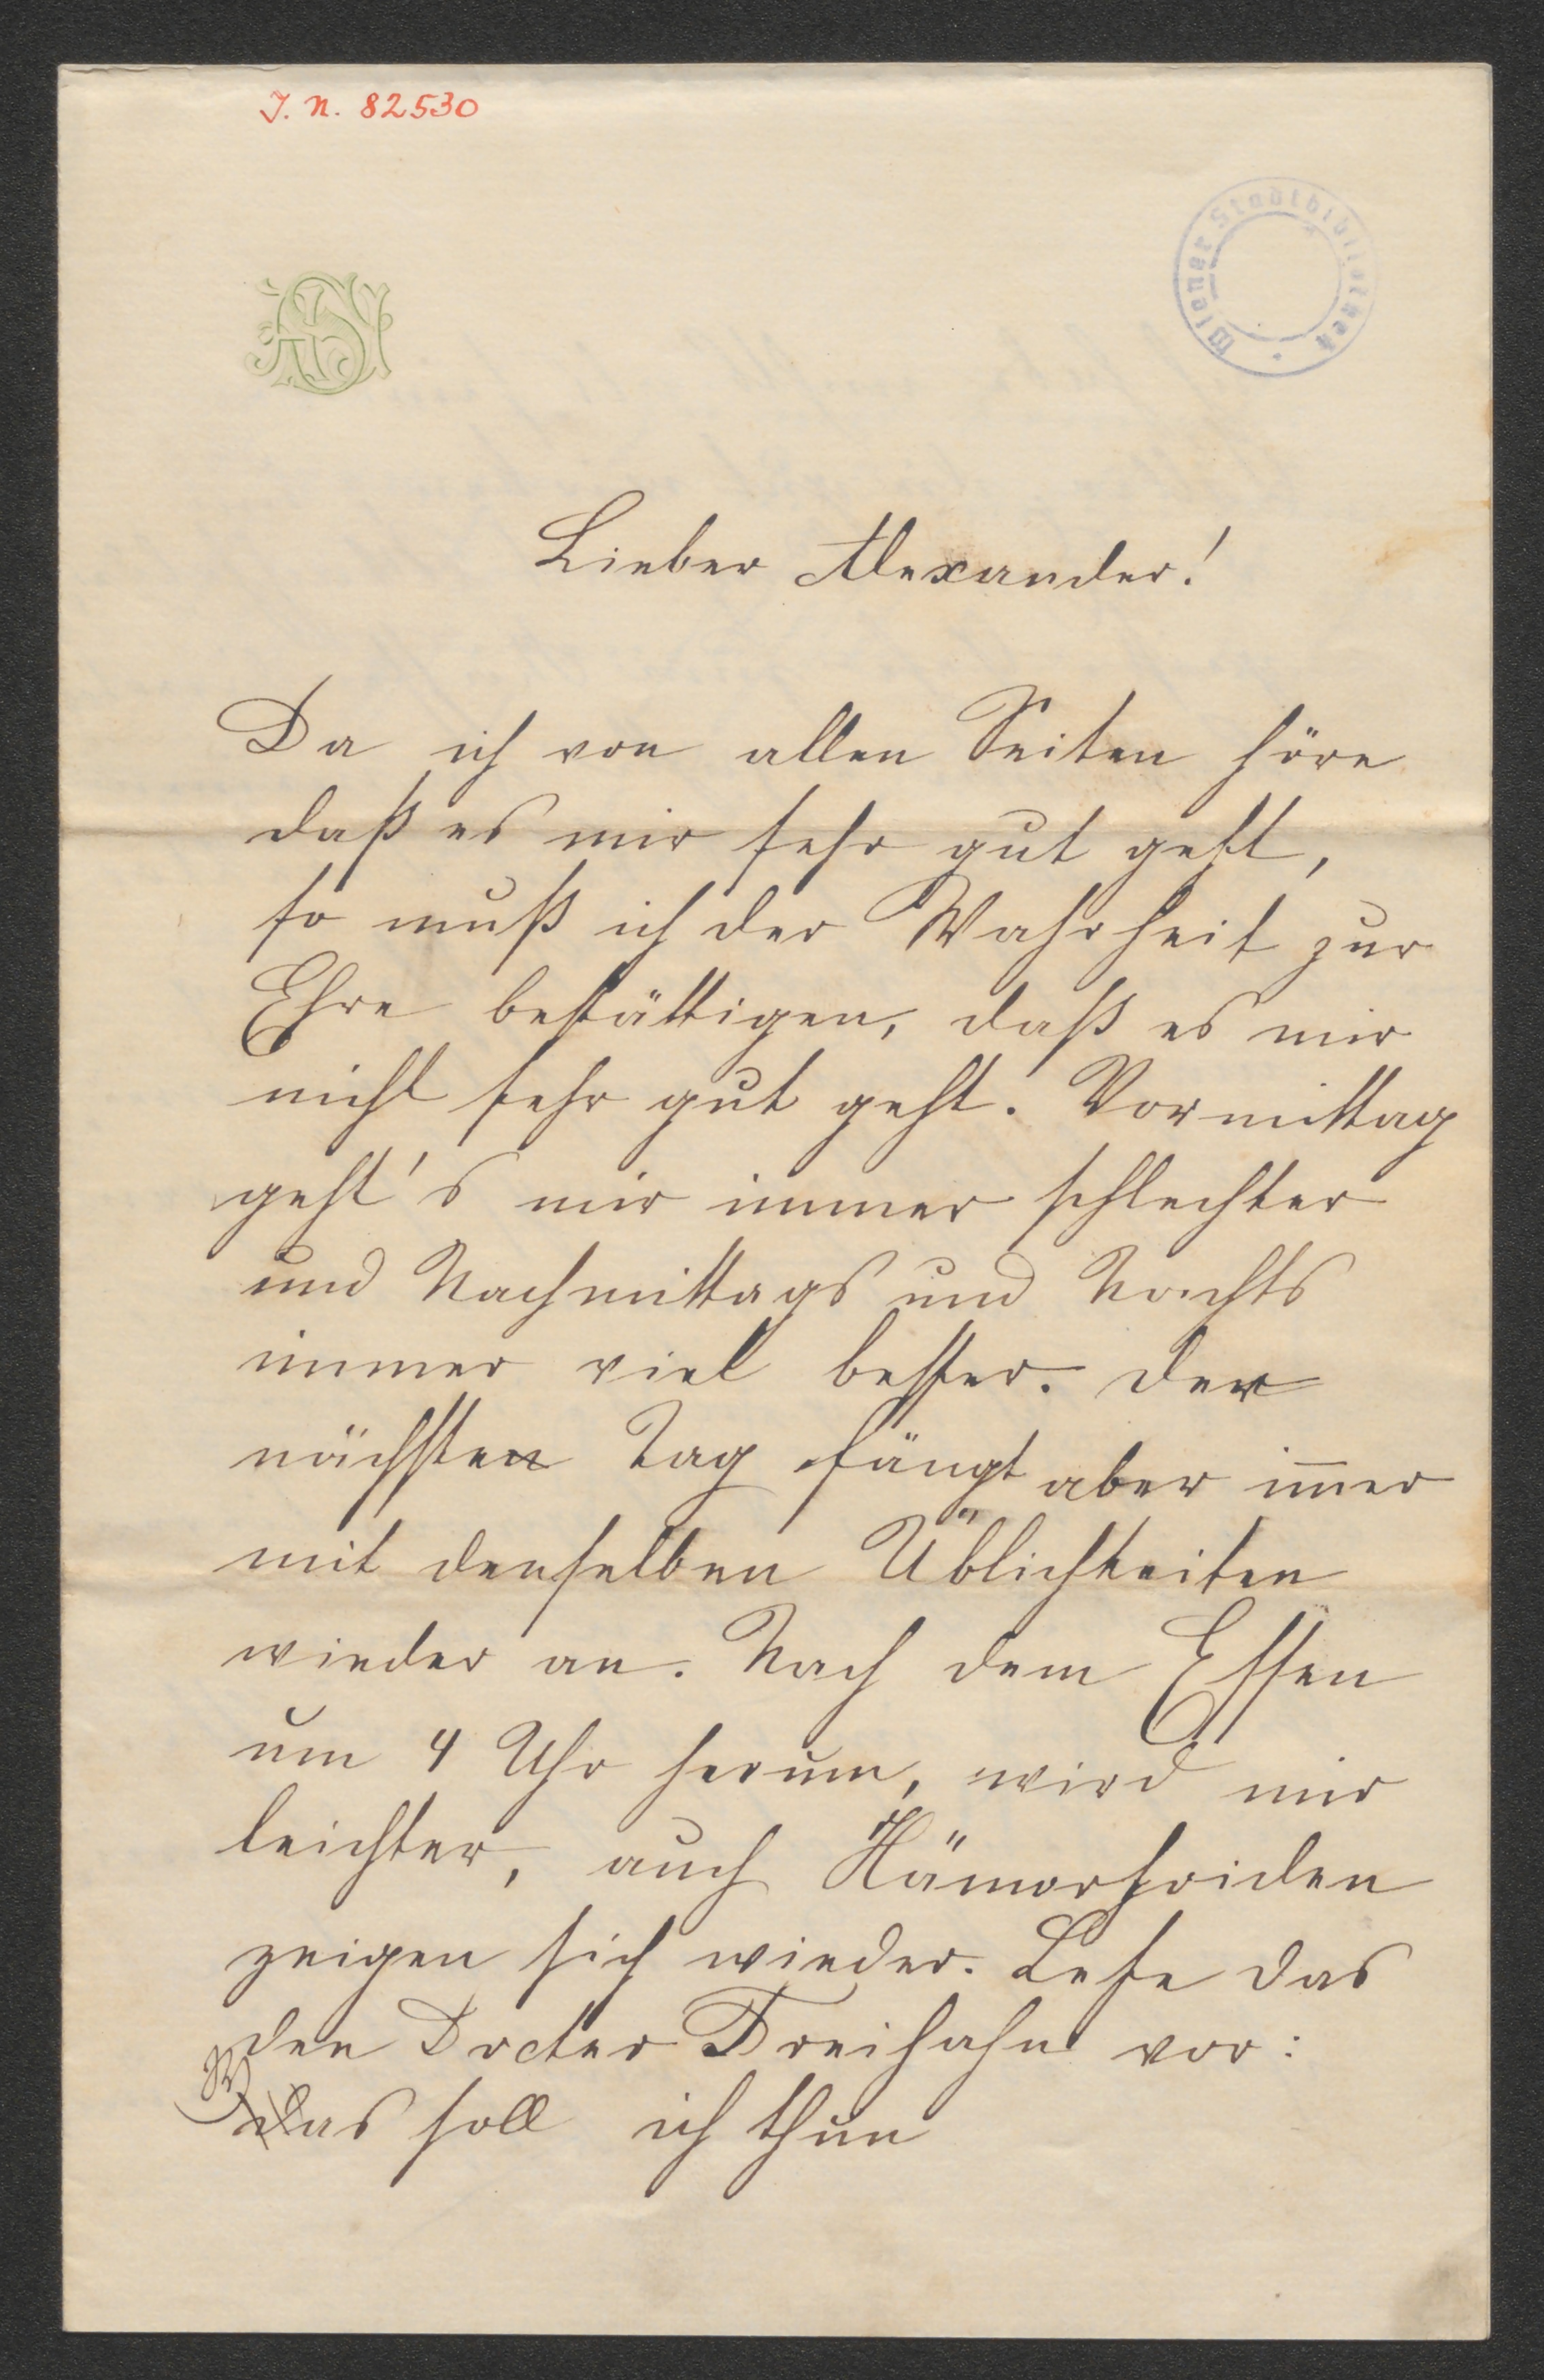 J. N. 82530
Wiener Stadtbibliothek
Lieber Alexander!
Da ich von allen Seiten höre
daß es mir sehr gut geht,
so muß ich der Wahrheit zur
Ehre bestättigen, daß es mir
nicht sehr gut geht. Vormittag
geht's mir immer schlechter
und Nachmittags und Nachts
immer viel besser. Der
nächsten Tag fängt aber im̅er
mit denselben Üblichkeiten
wieder an. Nach dem Essen
um 4 Uhr herum, wird mir
leichter, auch Hämorhoiden
zeigen sich wieder. Lese das
den Docter Freihahn vor:
Was soll ich thun